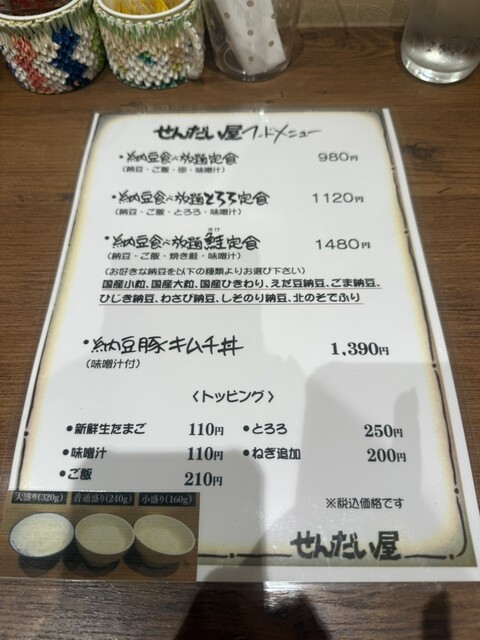 せんだい屋フードメニュー
・納豆食べ放題定食 980円
(納豆・ご飯・卵・味噌汁)
・納豆食べ放題とろろ定食 1120円
(納豆・ご飯・とろろ・味噌汁)
さけ
・納豆食べ放題鮭定食 1480円
(納豆・ご飯・焼き鮭・味噌汁)
(お好きな納豆を以下の種類よりお選び下さい)
国産小粒、国産大粒、国産ひきわり、えだ豆納豆、ごま納豆、
ひじき納豆、わさび納豆、しそのり納豆、北のそてふり
・納豆豚キムチ丼 1,390円
(味噌汁付)
〈トッピング〉
•新鮮生たまご 110円 •とろろ 250円
•味噌汁 110円 •ねぎ追加 200円
•ご飯 210円
大盛り(320g) 普通盛り(240g) 小盛り(160g)
※税込価格です
せんだい屋